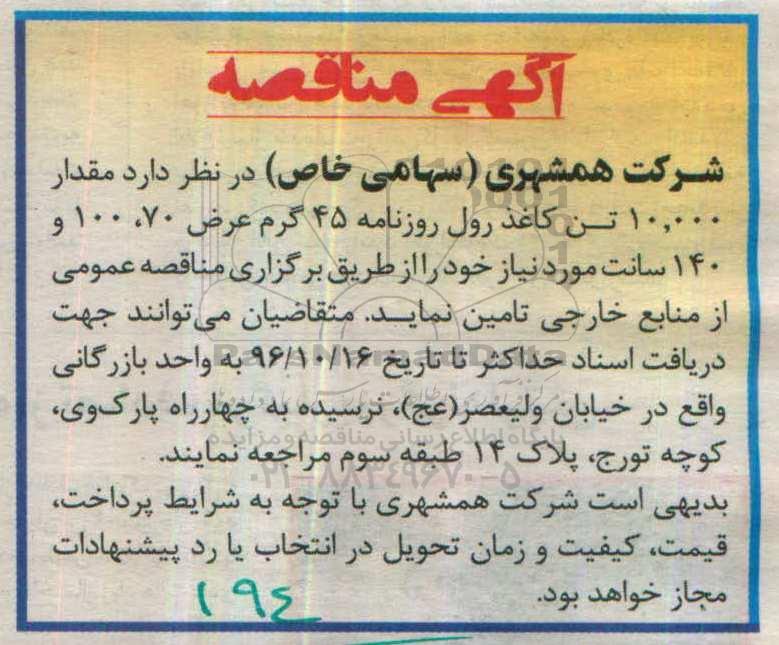 آگهی مناقصه
شرکت همشهری (سهامی خاص) در نظر دارد مقدار
۱۰,۰۰۰ تن کاغذ رول روزنامه ۴۵ گرم عرض ۷۰، ۱۰۰ و
۱۴۰ سانت مورد نیاز خود را از طریق برگزاری مناقصه عمومی
از منابع خارجی تامین نماید. متقاضیان می‌توانند جهت
دریافت اسناد حداکثر تا تاریخ ۹۶/۱۰/۱۶ به واحد بازرگانی
واقع در خیابان ولیعصر(عج)، نرسیده به چهارراه پارک‌وی،
کوچه تورج، پلاک ۱۴ طبقه سوم مراجعه نمایند.
بدیهی است شرکت همشهری با توجه به شرایط پرداخت،
قیمت، کیفیت و زمان تحویل در انتخاب یا رد پیشنهادات
مجاز خواهد بود.
۱۹٤
ParsNamadData
پایگاه اطلاع رسانی مناقصه و مزایده
۰۲۱-۸۸۳۴۹۶۷۰-۵